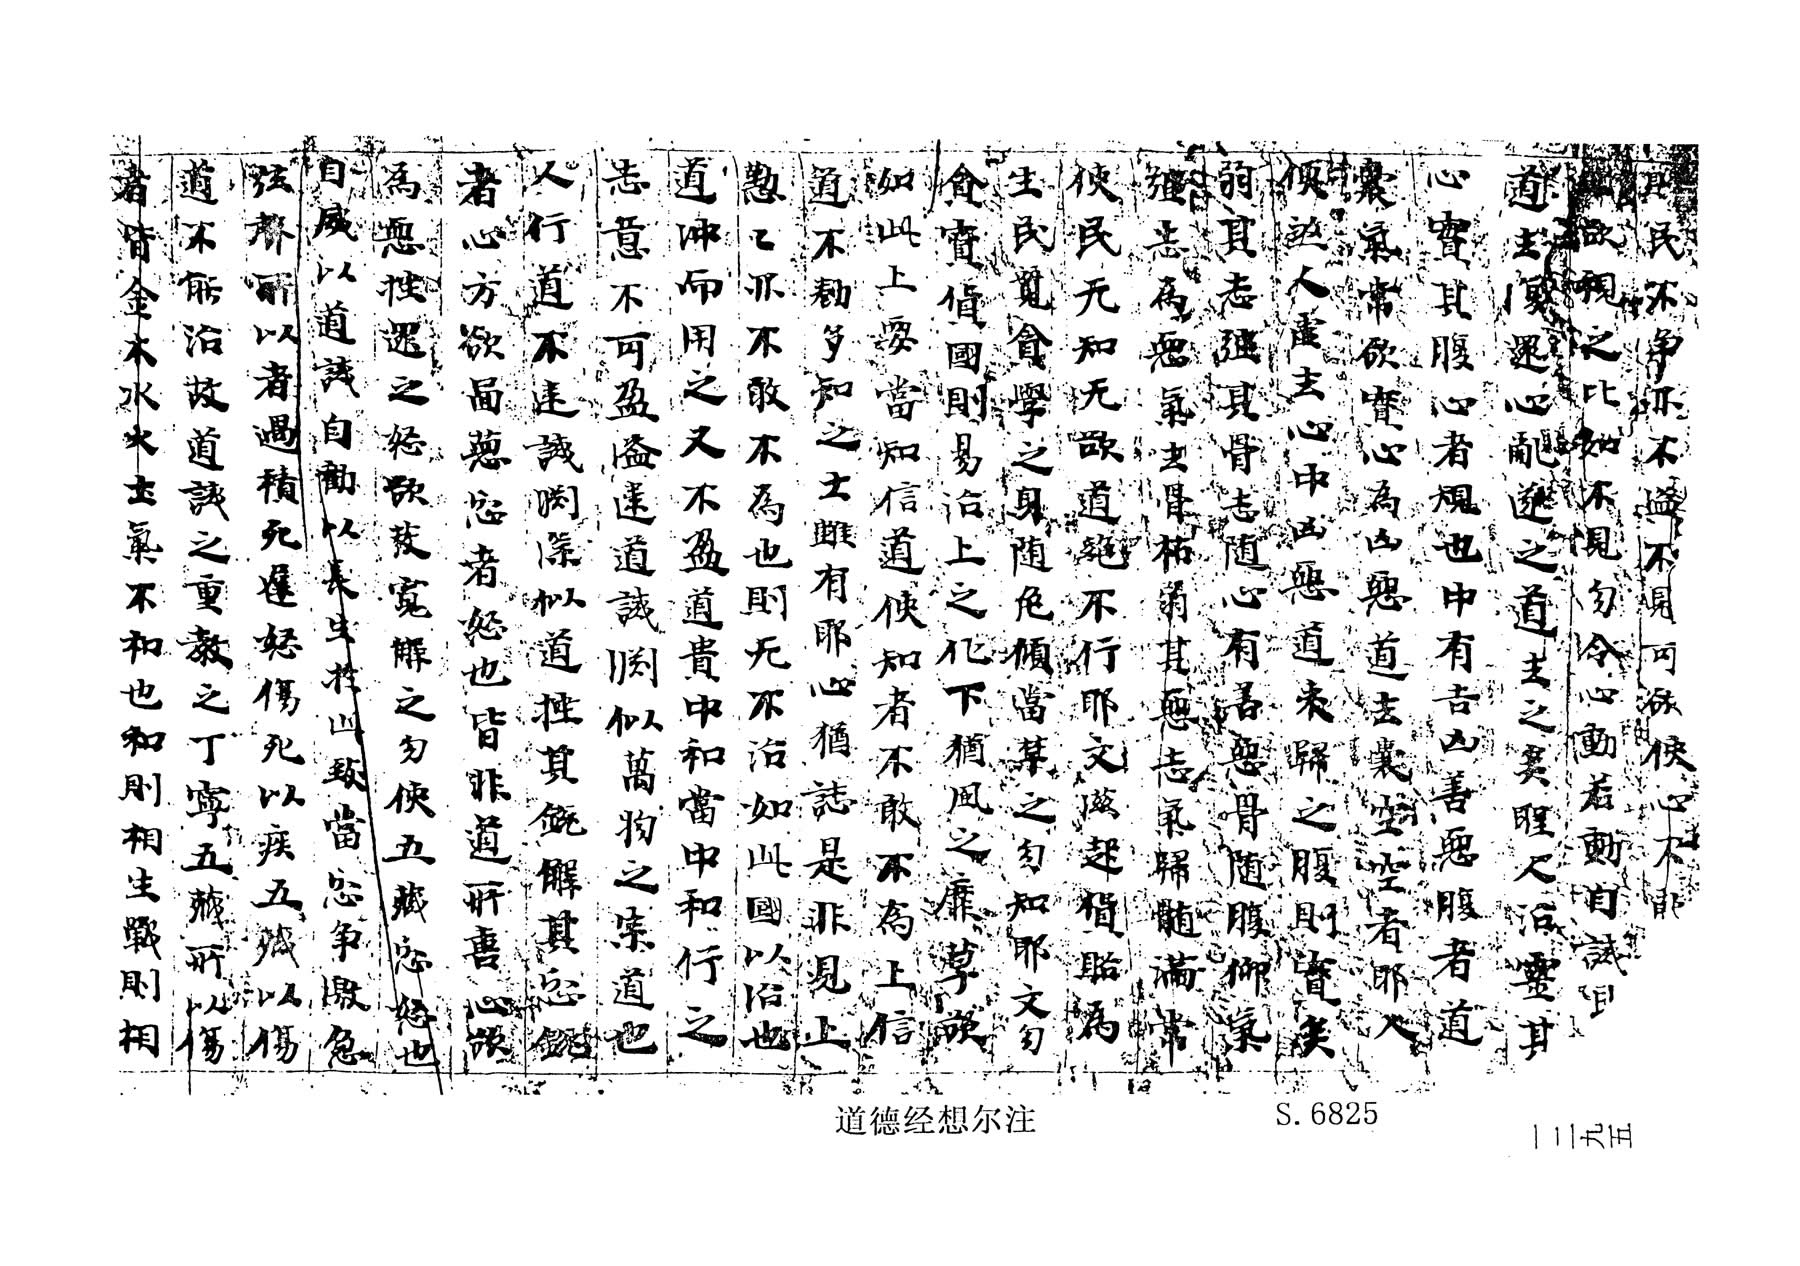 其民不爭亦不盜不見可欲使心不亂
欲視之比如不見勿令心動若動自誡
道去復還心亂遂之道去之矣聖人治靈其
心實其腹心者規也中有吉凶善惡腹者道
囊氣常欲實心為凶惡道去囊空空者耶入
便煞人虛去心中凶惡道來歸之腹則實矣
弱其志強其骨志隨心有善惡骨隨腹仰氣
強志為惡氣去骨枯弱其惡志氣歸髓滿常
使民无知无欲道絕不行耶文滋起貨賂為
生民貪貪學之身隨危傾當禁之勿知耶文勿
貪寶貨國則易治上之化下猶風之靡草欲
如此上要當知信道使知者不敢不為上信
道不勌多知之士雖有耶心猶誌是非見上
懃〻亦不敢不為也則无不治如此國以治也
道沖而用之又不盈道貴中和當中和行之
志意不可盈溢違道誡渕似萬物之宗道也
人行道不違誡渕深似道挫其銳解其忿銳
者心方欲啚惡忿者怒也皆非道所喜心欲
為惡挫還之怒欲發寬解之勿使五藏忿怒也
自威以道誡自勸以長生於此致當忿爭激急
弦聲所以者過積死遲怒傷死以疾五藏以傷
道不能治故道誡之重教之丁寧五藏所以傷
者皆金木水火土氣不和也和則相生戰則相
道德经想尔注
S.6825
一二九五